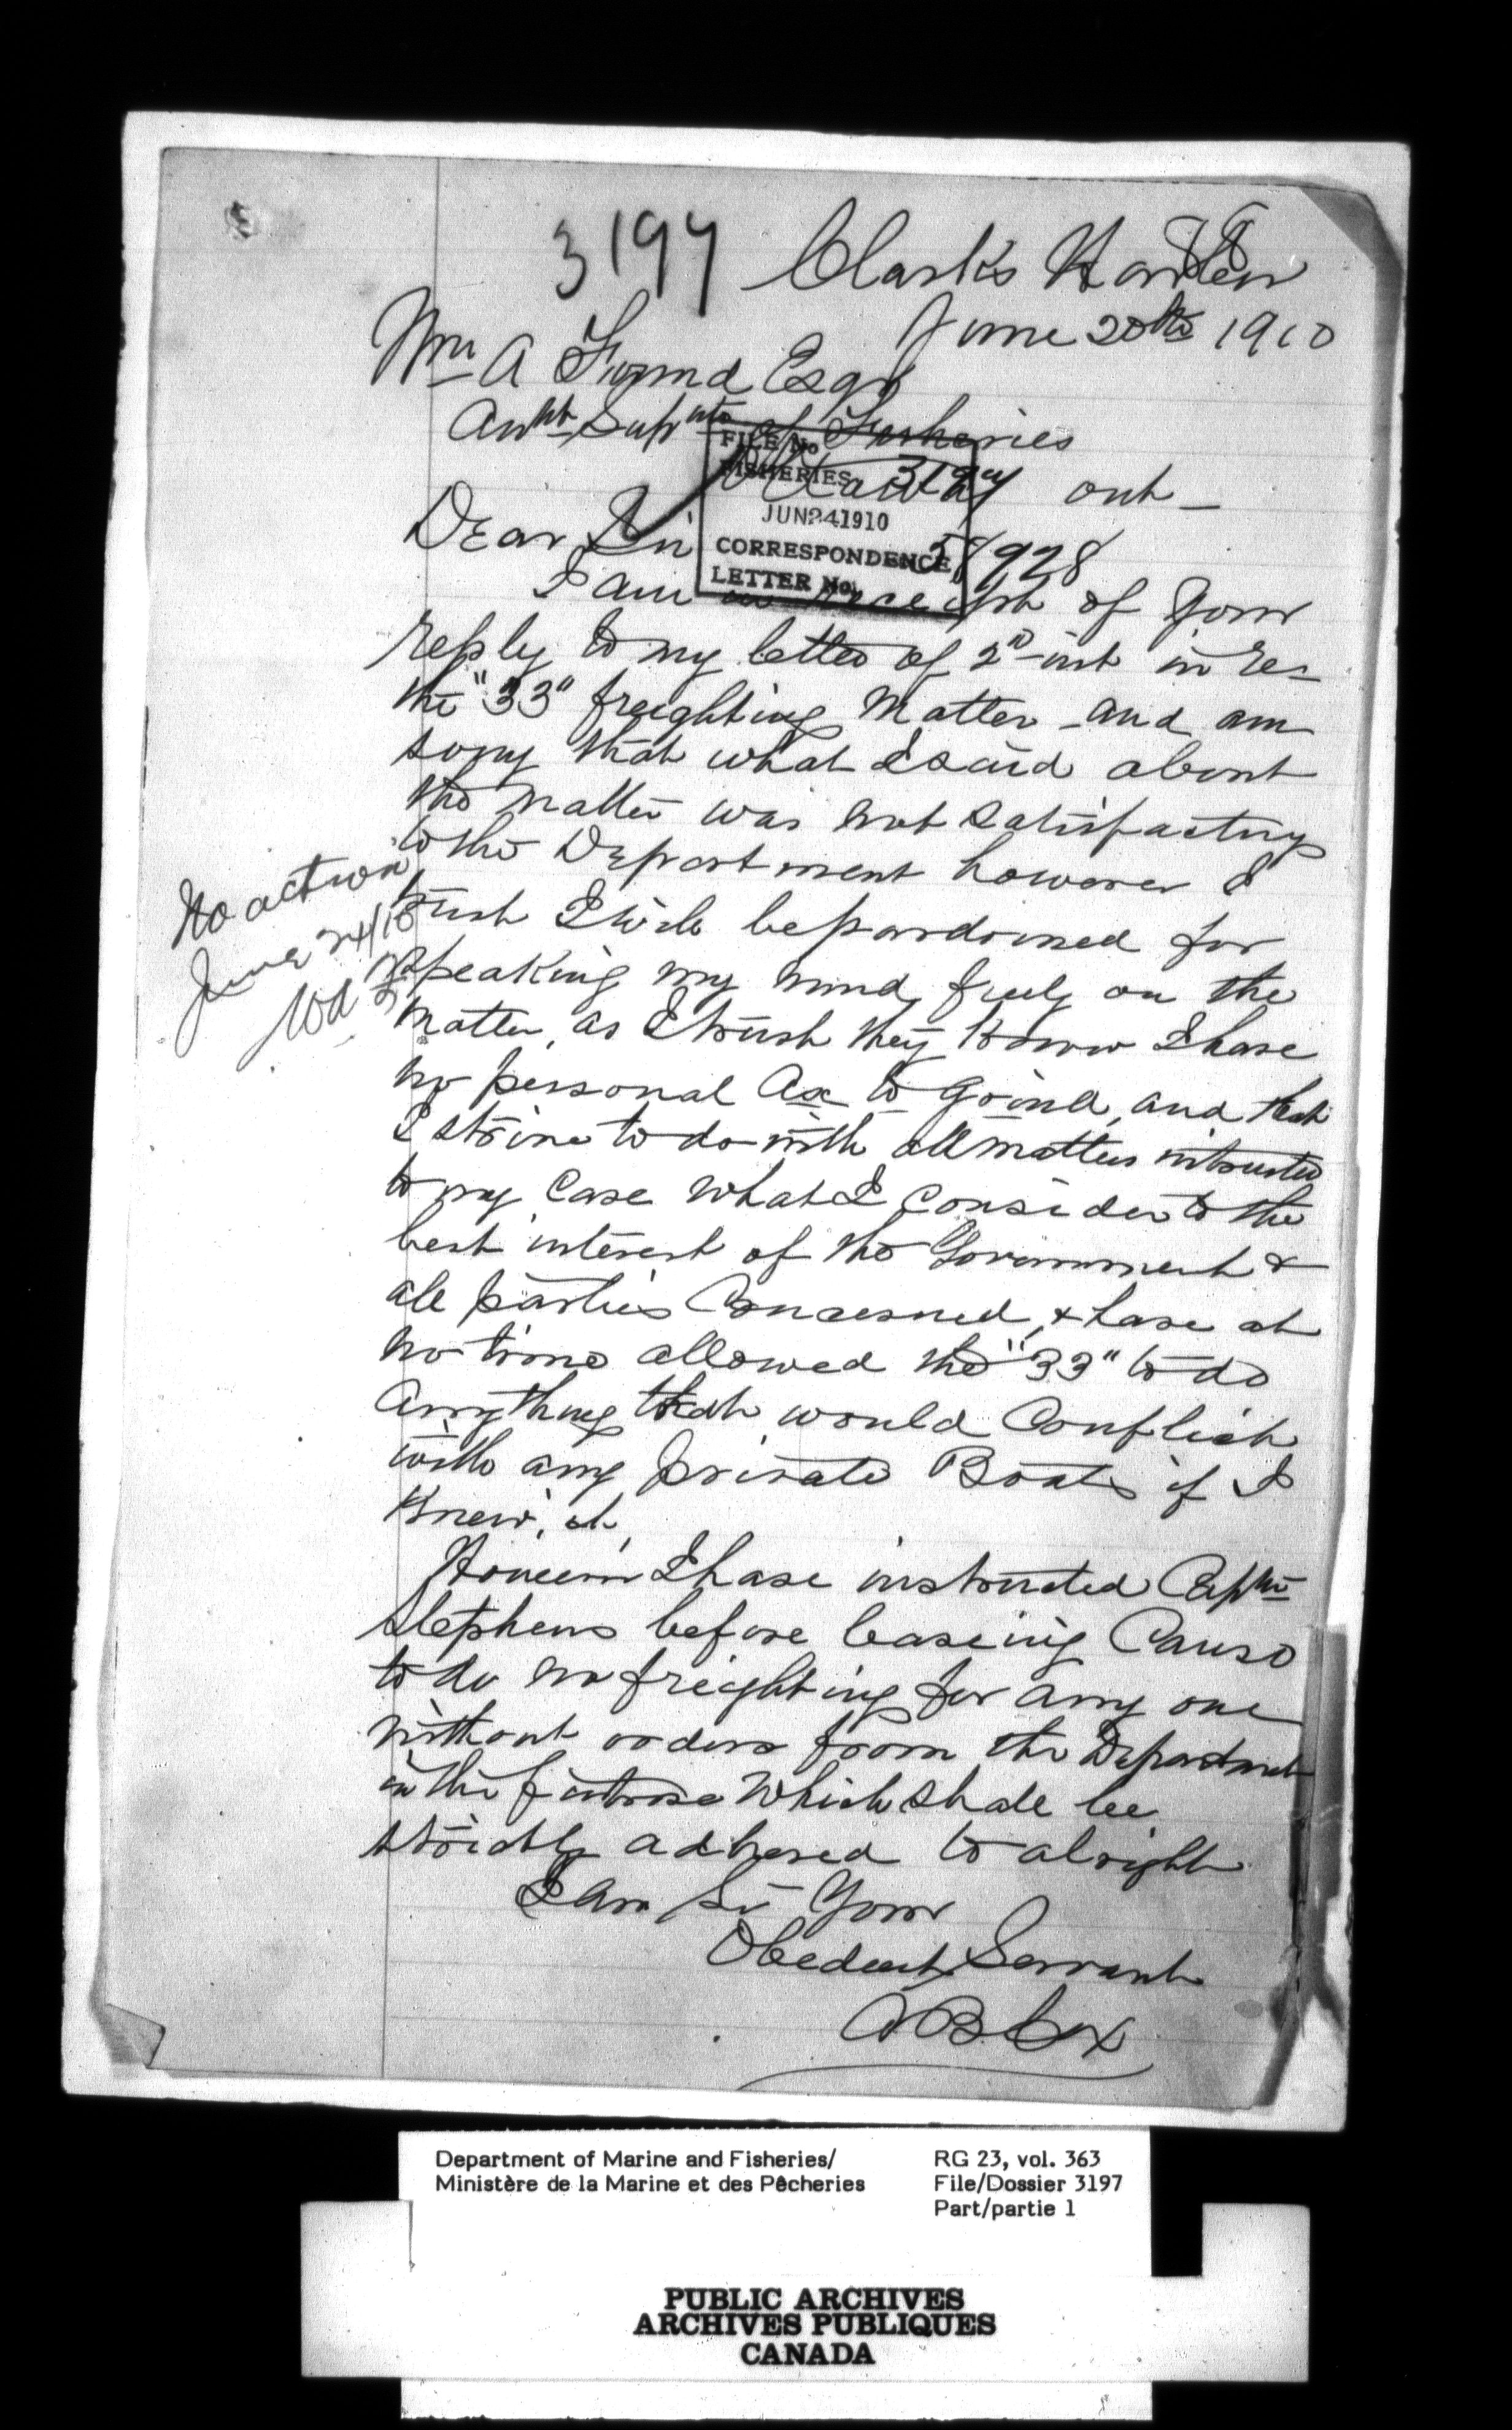 3197 Clark's Harbor
88
June 20th 1910
Wm A Found Esqr
Asst Supt of Fisheries
Ottawa Ont-
FILE No
FISHERIES 3197
JUN 24 1910
CORRESPONDENCE
LETTER No. 58928
Dear Sir
I am in receipt of your
reply to my letter of 2nd inst in re-
the "33" freighting matter - and am
sorry that what I said about
the matter was not satisfactory
to the Department however I
trust I will be pardoned for
speaking my mind freely on the
matter, as I trust they know I have
no personal ax to grind, and that
I strive to do with all matters intrusted
to my care what I consider to the
best interest of the Government &
all parties concerned, & have at
no time allowed the "33" to do
anything that would conflict
with any private Boats if I
knew, it,
No action
June 24/10
However I have instructed Captn
Stephens before leaveing Canso
to do no freighting for any one
without orders from the Department
in the future which shall be
strictly adhered to alright
I am Sir Your
Obedient Servant
A B Cox
Department of Marine and Fisheries/
Ministère de la Marine et des Pêcheries
RG 23, vol. 363
File/Dossier 3197
Part/partie 1
PUBLIC ARCHIVES
ARCHIVES PUBLIQUES
CANADA